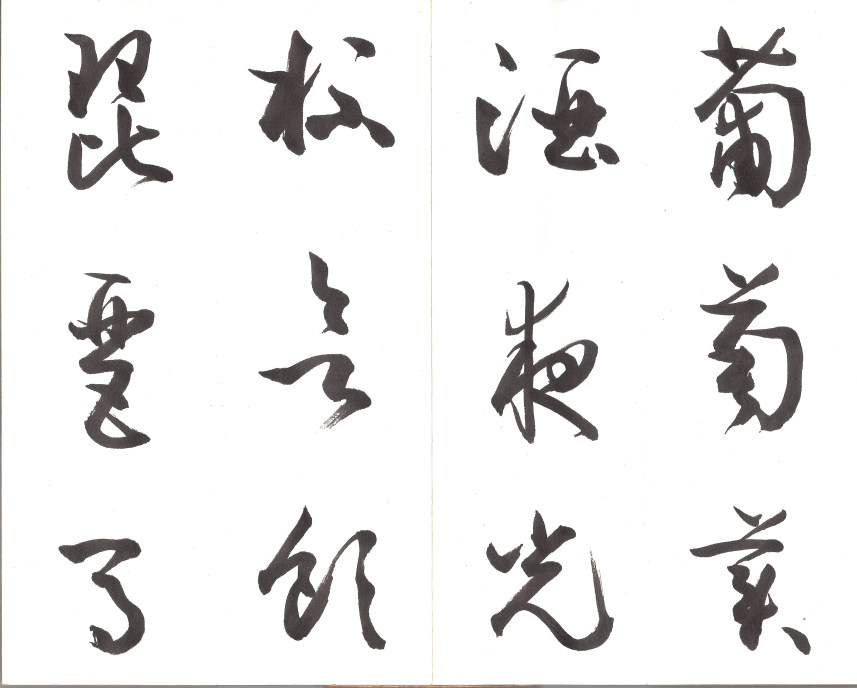 葡萄美
酒夜光
杯欲飲
琵琶馬